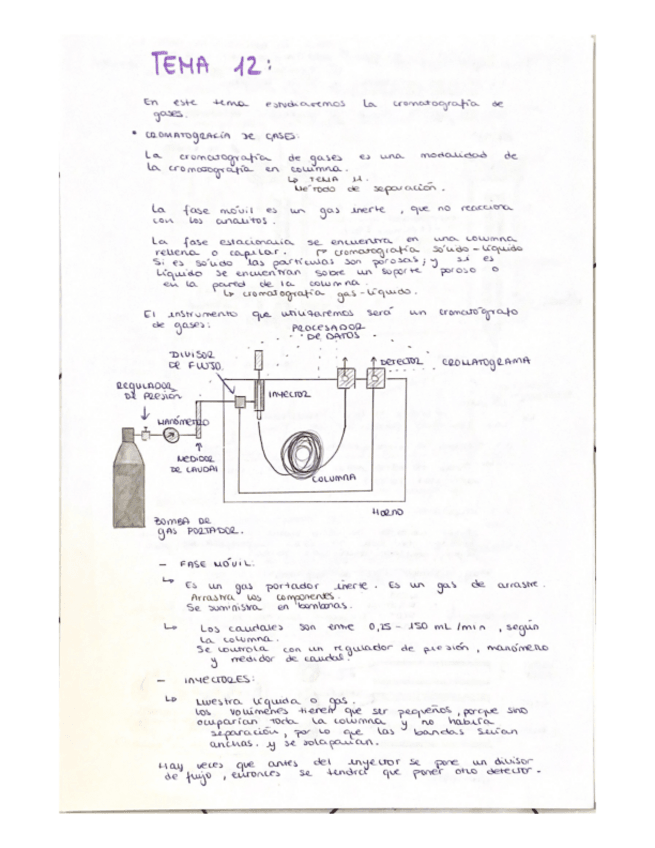 TEMA 12:
En este tema estudiaremos la cromatografía de
gases.
• CROMATOGRAFÍA DE GASES:
La cromatografía de gases es una modalidad de
la cromatografía en columna.
↳ TEMA 11.
Método de separación.
La fase móvil es un gas inerte, que no reacciona
con los analitos.
La fase estacionaria se encuentra en una columna
rellena o capilar. ↱ cromatografía sólido-líquido
Si es sólido las partículas son porosas; y si es
líquido se encuentran sobre un soporte poroso o
en la pared de la columna.
↳ cromatografía gas-líquido.
El instrumento que utilizaremos será un cromatógrafo
de gases:
PROCESADOR
DE DATOS
DIVISOR
DE FLUJO
DETECTOR
CROMATOGRAMA
REGULADOR
DE PRESIÓN
INYECTOR
MANÓMETRO
MEDIDOR
DE CAUDAL
COLUMNA
HORNO
BOMBA DE
GAS PORTADOR.
- FASE MÓVIL:
↳ Es un gas portador inerte. Es un gas de arrastre.
Arrastra los componentes.
Se suministra en bombonas.
↳ Los caudales son entre 0,25 - 150 mL/min, según
la columna.
Se controla con un regulador de presión, manómetro
y medidor de caudal.
- INYECTORES:
↳ Muestra líquida o gas.
Los volúmenes tienen que ser pequeños, porque sino
ocuparían toda la columna y no habría
separación, por lo que las bandas serían
anchas. y se solaparían.
Hay veces que antes del inyector se pone un divisor
de flujo, entonces se tendrá que poner otro detector.